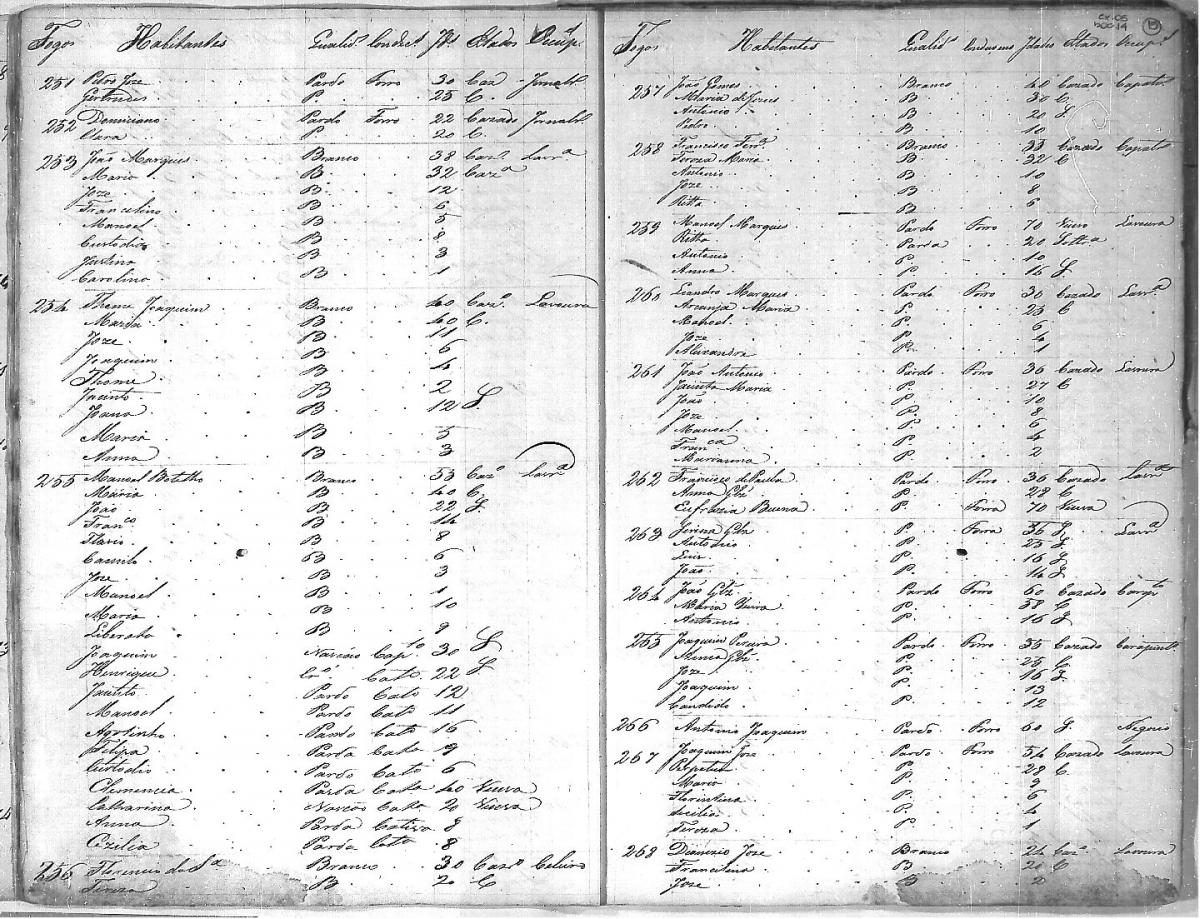 Fogos Habitantes Qualid.e Condeç.m Id.e Estados Occup.
251 Pedro Joze Pardo Forro 30 Caz Jornalr.
Gertrudes P. 25 C.
252 Pardo Forro 22 Cazado Jornalr.
Clara P 20 C.
253 João Marques Branco 38 Caz.o Lavr.a
Maria B. 32 Caz.a
Joze B. 12
Francelino B 6
Manoel B 5
Custodio B 8
Justino B 3
Carolina B 1
254 Thome Joaquim Branco 40 Caz.o Lavoura
Maria B 40 C.
Joze B 11
Joaquim B 6
Thome B 4
Jacinto B 2
Joana B 12 S.
Maria B 5
Anna B 3
255 Manoel Botelho Branco 53 Caz.o Lavr.a
Maria B 40 C.
João B 22 S.
Fran.co B 14
Flavio B 8
Camilo B 6
Joze B 3
Manoel B 1
Maria B 10
Liberata B 9
Joaquim Nascão Cap.to 30 S
Henrique Cr.o Cato 22 S
Jacinto Pardo Cato 12
Manoel Pardo Cato 11
Agostinho Pardo Cato 16
Felipa Parda Cata 9
Custodio Pardo Cato 6
Clemencia Parda Cata 40 Viuva
Catharina Nascão Cata 20 Viuva
Anna Parda Cativa 8
Cizilia Parda Cata 8
256 Florencio de S.a Branco 30 Caz.o
Tereza B 20 C
Fogos Habitantes Qualid.e Idades Estados Occup.m
257 João Gomes Branco 40 Cazado Capatr.
Maria de Jezus B 30 C.
Antonio B 20 S.
Pedro B 10
258 Francisco Ferr.a Branco 33 Cazado Capatr.
Tereza Maria B 32 C
Antonio B 10
Joze B 8
Ritta B 6
259 Manoel Marques Pardo Forro 70 Viuvo Lavoura
Ritta Parda 20 Soltr.a
Antonio P. 10
Anna P. 16 S.
260 Leandro Marques Pardo Forro 30 Cazado Lavr.a
Arcanja Maria P. 25 C
Manoel P. 6
Joze P. 4
Alexandra P. 1
261 João Antonio Pardo Forro 36 Cazado Lavoura
Jacinta Maria P. 27 C
João P. 10
Joze P. 8
Manoel P. 6
Fran.ca P. 4
Marianna P. 2
262 Francisco de Paula Pardo Forro 36 Cazado Lavr.a
Anna Glz P. 28 C
Eufrazia Buena P. Forra 70 Viuva
263 Glz P. Forra 36 S. Lavr.a
Antonio P. 25 S.
Luis P. 16 S.
João P. 14 S.
264 João Glz Pardo Forro 60 Cazado Carap.to
Maria Vieira P. 58 C
Antonio P. 16 S.
265 Joaquim Pereira Pardo Forro 35 Cazado Carapint.o
Anna Glz P. 25 C
Joze P. 16 S.
Joaquim P. 13
Candido P. 12
266 Antonio Joaquim Pardo Forro 60 S. Negocio
267 Joaquim Joze Pardo Forro 54 Cazado Lavoura
Perpetua P. 28 C.
Maria P. 9
Florintina P. 6
Cicilia P. 4
Tereza P. 1
268 Dionizio Joze Branco 24 Caz.o Lavoura
Francelina B 20 C
Joze B 2